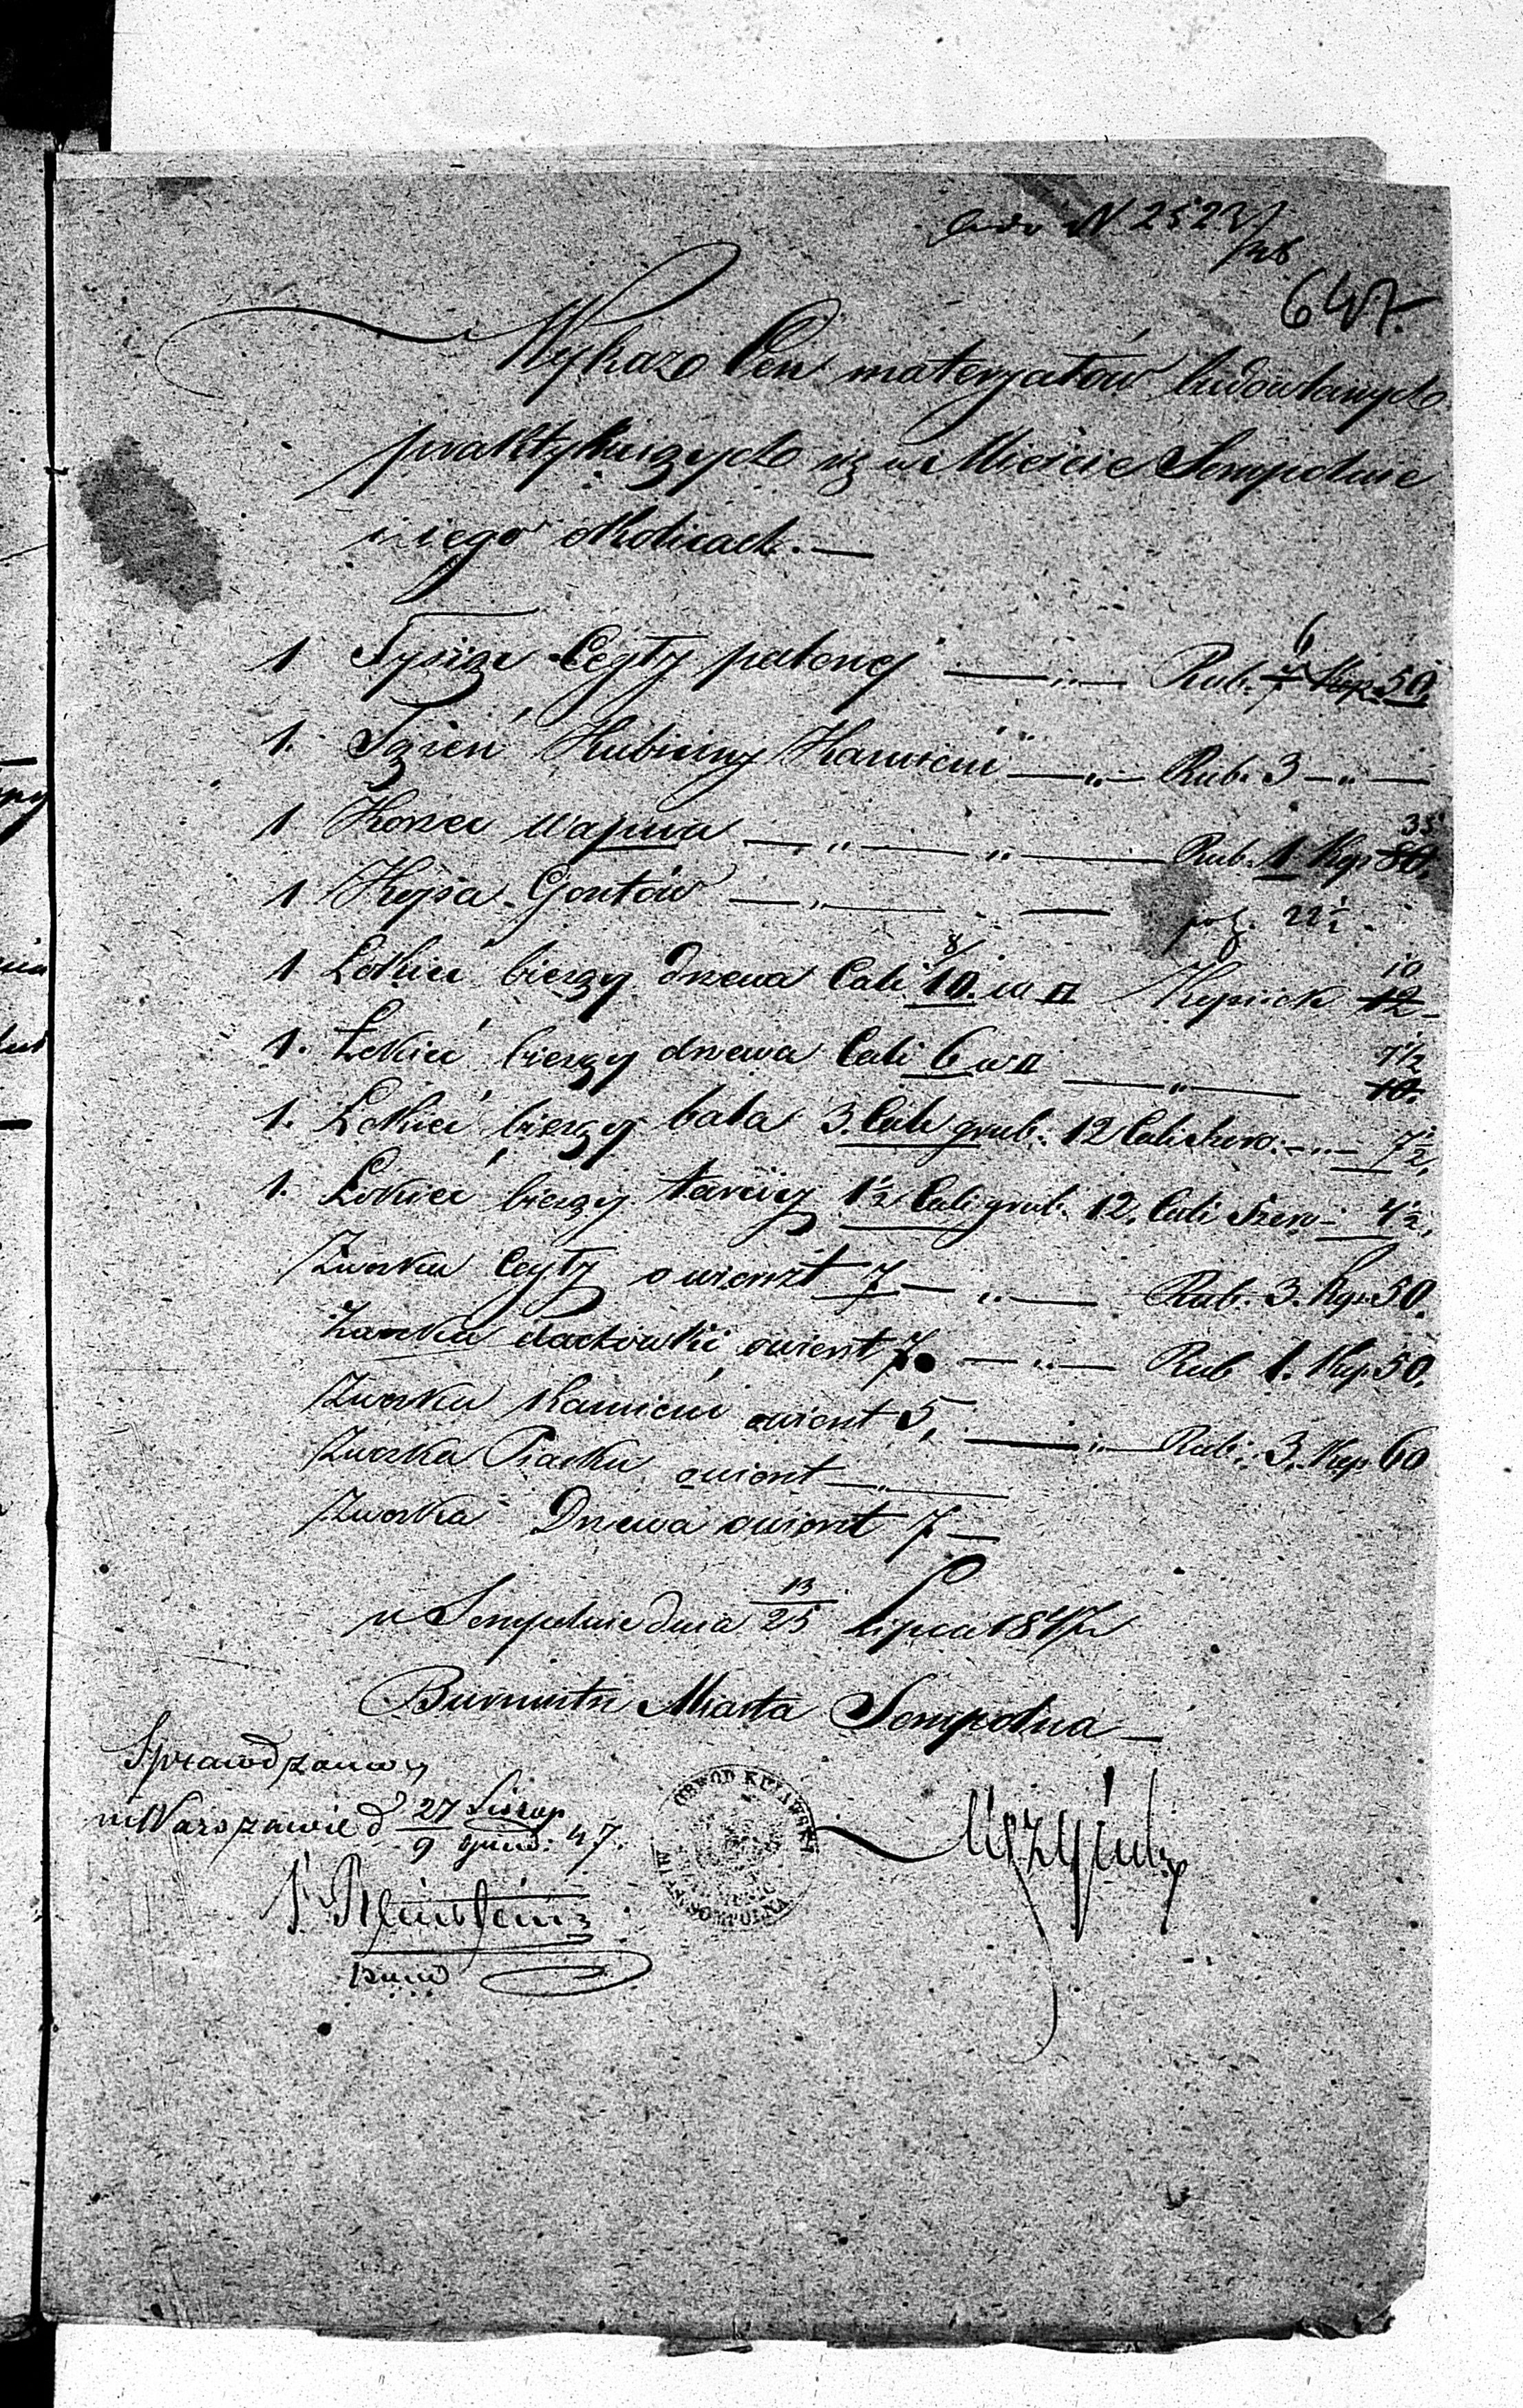 ad N 2523/48
647.
Wykaz Cen materyałów budowlanych
praktykuiących się w Mieście Sempolnie
i iego okolicach. —
1 Tysiąc Cegły paloney — „ — Rub. 7 6 Kop. 50.
1. Sążeń Kubiczny Kamieni — „ — Rub. 3 — „ —
1 Korzec Wapna — „ — „ — Rub. 1 Kop 80. 35
1 Kopa Gontów — „ — — 22½.
1 Łokieć bieżący drzewa Cali 10. 8/ w □ Kopieiek 12 10 —
1. Łokieć bieżący drzewa Cali 6 w □ — „ — 10. 7½
1. Łokieć bieżący bala 3. Cale grub: 12 Cali szero: — „ — 7½.
1. Łokieć bieżący tarcicy 1½ Cali grub. 12. Cali Szero — 4½.
Zwózka Cegły o wiorst 7 — „ — Rub. 3. Kop. 50.
Zwózka dachówki o wiorst 7. — „ — Rub 1. Kop. 50.
Zwózka Kamieni o wiorst 5, — „ — Rub: 3. Kop 60
Zwózka Piasku o wiorst — „ —
Zwózka Drzewa o wiorst 7 —
w Sempolnie dnia 13/25 Lipca 1847
Burmistrz Miasta Sempolna —
Sprawdzono
w Warszawie d 27 Listop / 9 Grud: 47.
OBWÓD KUIAWSKI
MIASTA SOMPOLNA